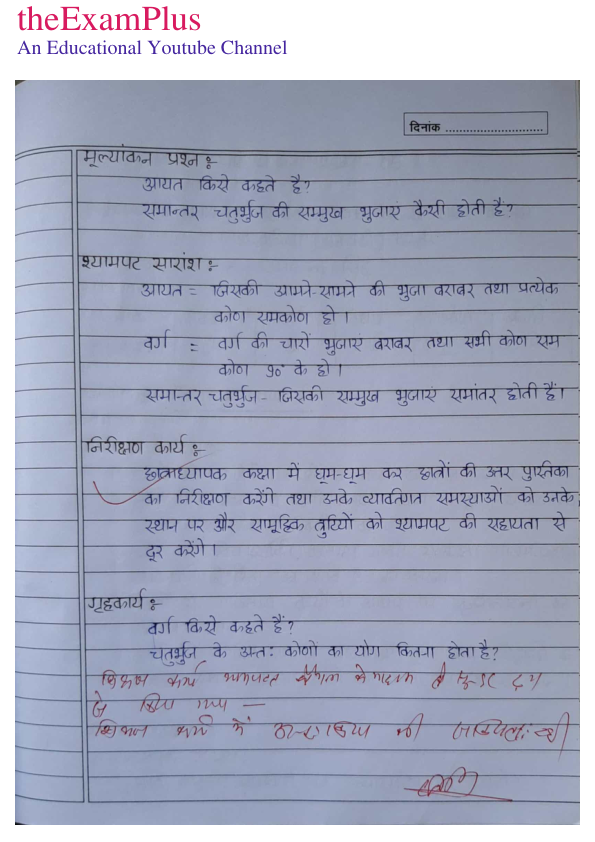 theExamPlus
An Educational Youtube Channel
दिनांक ............................
मूल्यांकन प्रश्न :-
आयत किसे कहते है?
समान्तर चतुर्भुज की सम्मुख भुजाएं कैसी होती है?
श्यामपट सारांश :-
आयत = जिसकी आमने-सामने की भुजा बराबर तथा प्रत्येक
कोण समकोण हो ।
वर्ग = वर्ग की चारों भुजाएं बराबर तथा सभी कोण सम
कोण 90° के हो ।
समान्तर चतुर्भुज - जिसकी सम्मुख भुजाएं समांतर होती हैं।
निरीक्षण कार्य :-
छात्राध्यापक कक्षा में घूम-घूम कर छात्रों की उत्तर पुस्तिका
का निरीक्षण करेंगे तथा उनके व्यक्तिगत समस्याओं को उनके
स्थान पर और सामूहिक त्रुटियों को श्यामपट की सहायता से
दूर करेंगे ।
गृहकार्य :-
वर्ग किसे कहते हैं?
चतुर्भुज के अन्त: कोणों का योग कितना होता है?
शिक्षण कार्य के माध्यम
से किया गया —
शिक्षण कार्य में की थी